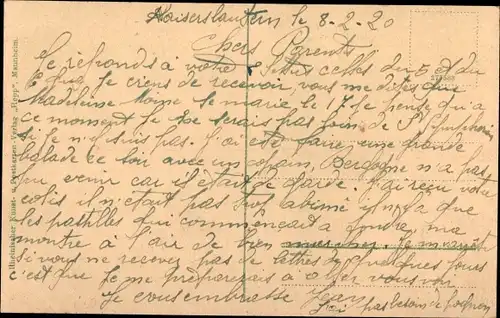 Kaiserslautern le 8-2-20
Chers Parents
Je réponds à votre lettre celles du 5 et du
6 que je viens de recevoir, vous me dites que
Madeleine se marie le 17. Je pense qu'à
ce moment je ne serais pas loin de St
si je n'y suis pas. J'ai été faire une grande
balade ce soir avec un copain, n'a pas
pu venir car il était de garde. J'ai reçu votre
colis il n'était pas trop abimé il n'y a que
les pastilles qui commençait à fondre, ma
montre à l'air de bien marcher.
Si vous ne recever pas de lettres de quelques jours
c'est que je me préparerais à aller vous voir
Je vous embrasse Jean
j'ai pas besoin de pognon
Rheinischer Kunst- u. Ansichten-Verlag "Herpp", Mannheim.